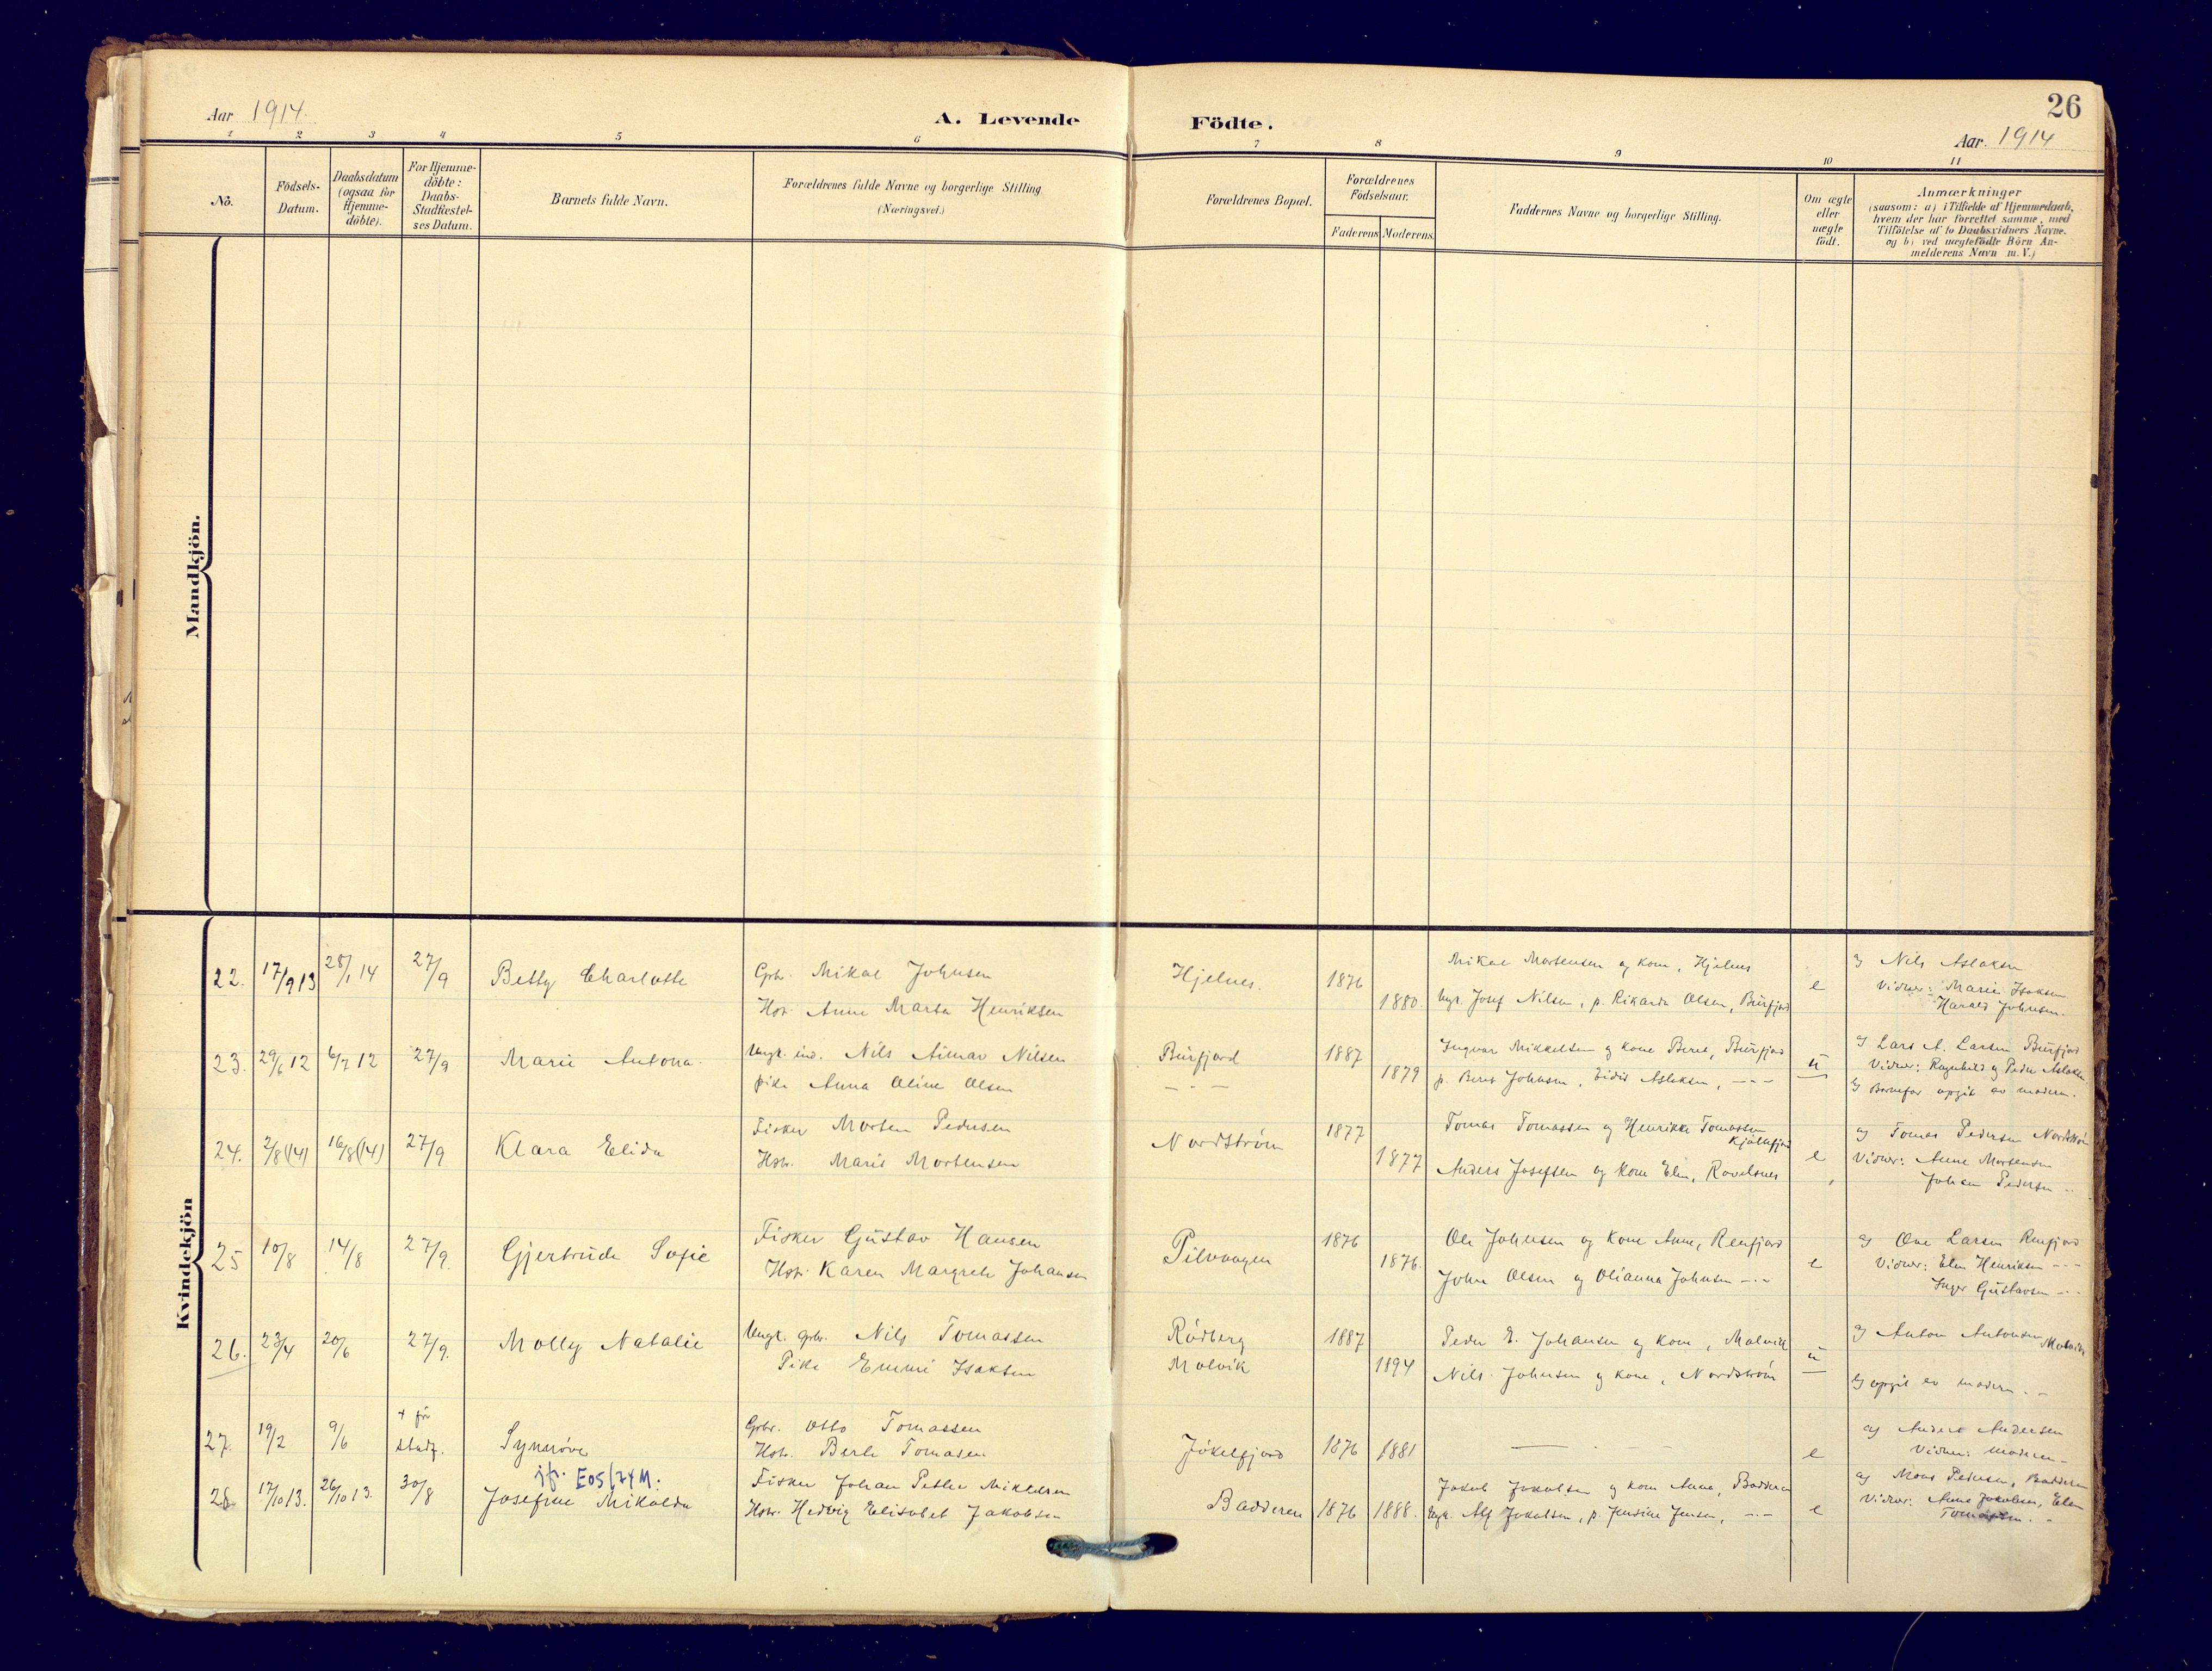 26
Aar 1914. A. Levende Födte. Aar. 1914
1 2 3 4 5 6 7 8 9 10 11
No.
Födsels-
Datum.
Daabsdatum
(ogsaa for
Hjemme-
döbte).
For Hjemme-
döbte:
Daabs-
Stadfæstel-
ses Datum.
Barnets fulde Navn.
Forældrenes fulde Navne og borgerlige Stilling.
(Næringsvei.)
Forældrenes Bopæl.
Forældrenes
Födselsaar.
Faderens Moderens.
Faddernes Navne og borgerlige Stilling.
Om ægte
eller
uægte
födt.
Anmærkninger
(saasom: a) i Tilfælde af Hjemmedaab,
hvem der har forrettet samme, med
Tilföielse af to Daabsvidners Navne.
og b) ved uægtefödte Börn An-
melderens Navn m.V.)
Mandkjön.
Kvindekjön
22. 17/9 13 28/1 14 27/9 Betty Charlotte
Gbr. Mikal Johnsen
Hst. Anne Marta Henriksen
Hjelnes. 1876
1880.
Mikal Mortensen og kone, Hjelnes
Ungk. Josef Nilsen, p. Rikarda Olsen, Burfjord
e
Nils Aslaksen
Vidner: Marie Isaksen
Harald Johnsen.
23. 29/6 12 6/7 12 27/9 Marie Antona.
Ungk. ind. Nils Aimar Nilsen
pike Anna Oline Olsen
Burfjord 1887
— — — 1879
Ingvar Mikkelsen og kone Beret, Burfjord
p. Beret Johnsen, Eidis Aslaksen, — — —
u
Lars A. Larsen Burfjord
Vidner: Ragnhild og Peder Aslaksen
Barnefar opgit av moderen.
24. 2/8 (14) 16/8 (14) 27/9 Klara Elida
Fisker Morten Pedersen
Hstr. Marie Mortensen
Nordström 1877
1877
Tomas Tomassen og Henrikke Tomassen
Anders Josefsen og kone Elen, Ravelsnes
e
Tomas Pedersen Nordström
Vidner: Anne Mortensen
Johan Pedersen
25 10/8 14/8 27/9. Gjertrude Sofie
Fisker Gustav Hansen
Hstr. Karen Margrete Johansen
1876
1876.
Ole Johnsen og kone Anne, Reufjord
John Olsen og Olianna Johnsen — · —
e
Ove Larsen
Vidner: Elen Henriksen — — —
Inger Gustavsen
26. 23/4 20/6 27/9. Molly Natalie
Ungk. gbr. Nils Tomassen
Pike Emmi Isaksen
Rödberg 1887
Molvik 1894
Peder E. Johansen og kone, Malvik
Nils Johnsen og kone, Nordström
u
Anton Antonsen Malvik
opgit av moderen.
27. 19/2 9/6 + för
stadf. Synnöve
Gbr. Otto Tomassen
Hstr. Berit Tomasen
Jökelfjord 1876 1881
e
Anders Andersen
Vidner: moderen
28. 17/10 13. 26/10 13. 30/8 jfr. E05/74 M.
Josefine Mikalda
Fisker Johan Petter Mikkelsen
Hstr. Hedvig Elisabet Jakobsen
Badderen 1876 1888.
Jakob Jakobsen og kone Anne, Badderen
Ungk. Alf Jakobsen, p. Jensine Jensen, — · —
e
Mons Pedersen, Badderen
Vidner: Anne Jakobsen, Elen
Tomassen.